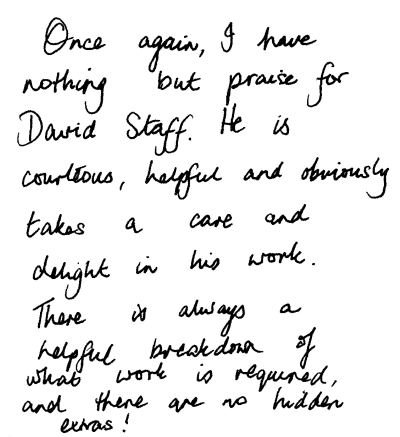 Once again, I have
nothing but praise for
David Staff. He is
courteous, helpful and obviously
takes a care and
delight in his work.
There is always a
helpful breakdown of
what work is required,
and there are no hidden
extras!